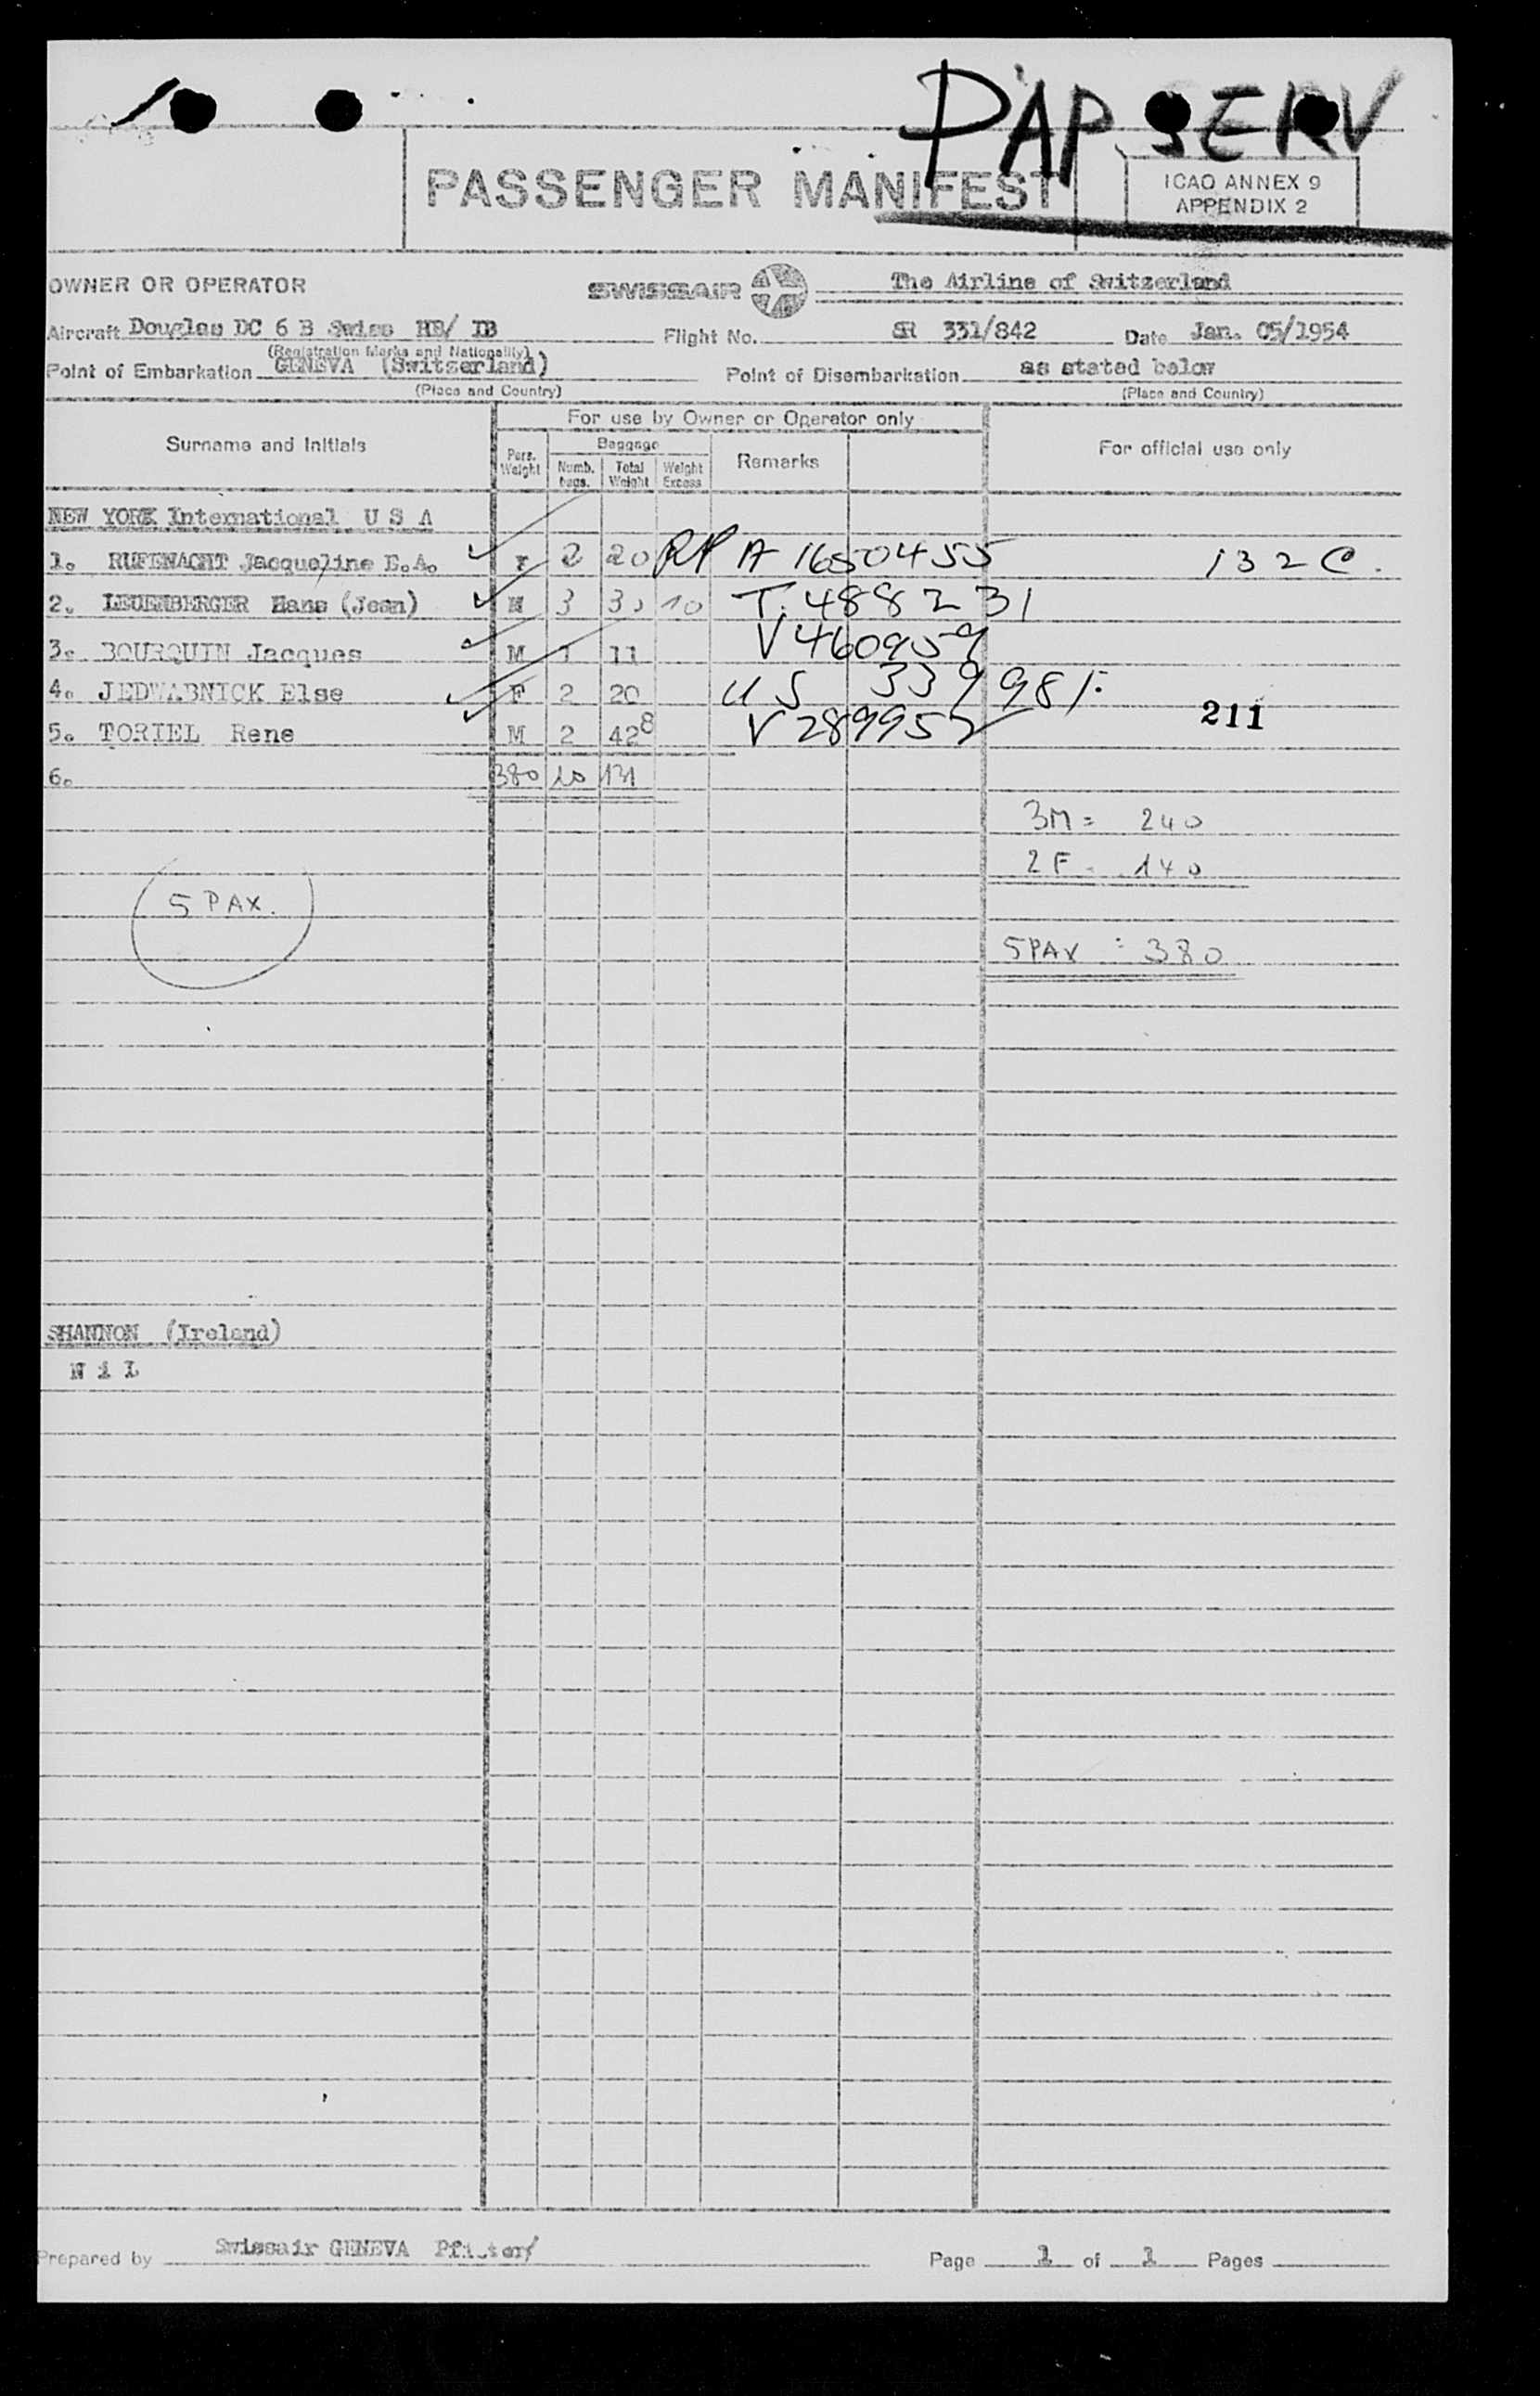 PAP SERV
PASSENGER MANIFEST
ICAO ANNEX 9
APPENDIX 2
OWNER OR OPERATOR SWISSAIR The Airline of Switzerland
Aircraft Douglas DC 6 B Swiss HB/ IB Flight No. SR 331/842 Date Jan. 05/1954
(Registration Marks and Nationality)
Point of Embarkation GENEVA (Switzerland) Point of Disembarkation as stated below
(Place and Country) (Place and Country)
For use by Owner or Operator only
Surname and Initials Pers. Weight Baggage Numb. bags. Total Weight Weight Excess Remarks For official use only
NEW YORK International U S A
1. RUFENACHT Jacqueline E.A. F 2 20 RP A 1650455 132 C.
2. LEUENBERGER Hans (Jean) M 3 30 10 T. 488231
3. BOURQUIN Jacques M 1 11 V 460959
4. JEDWABNICK Else F 2 20 US 339981.
211
5. TORIEL Rene M 2 428 V 289952
6. 380 10 131
3M = 240
2 F = 140
5 PAX.
5 PAX : 380
SHANNON (Ireland)
N i L
Prepared by Swissair GENEVA Page 1 of 1 Pages